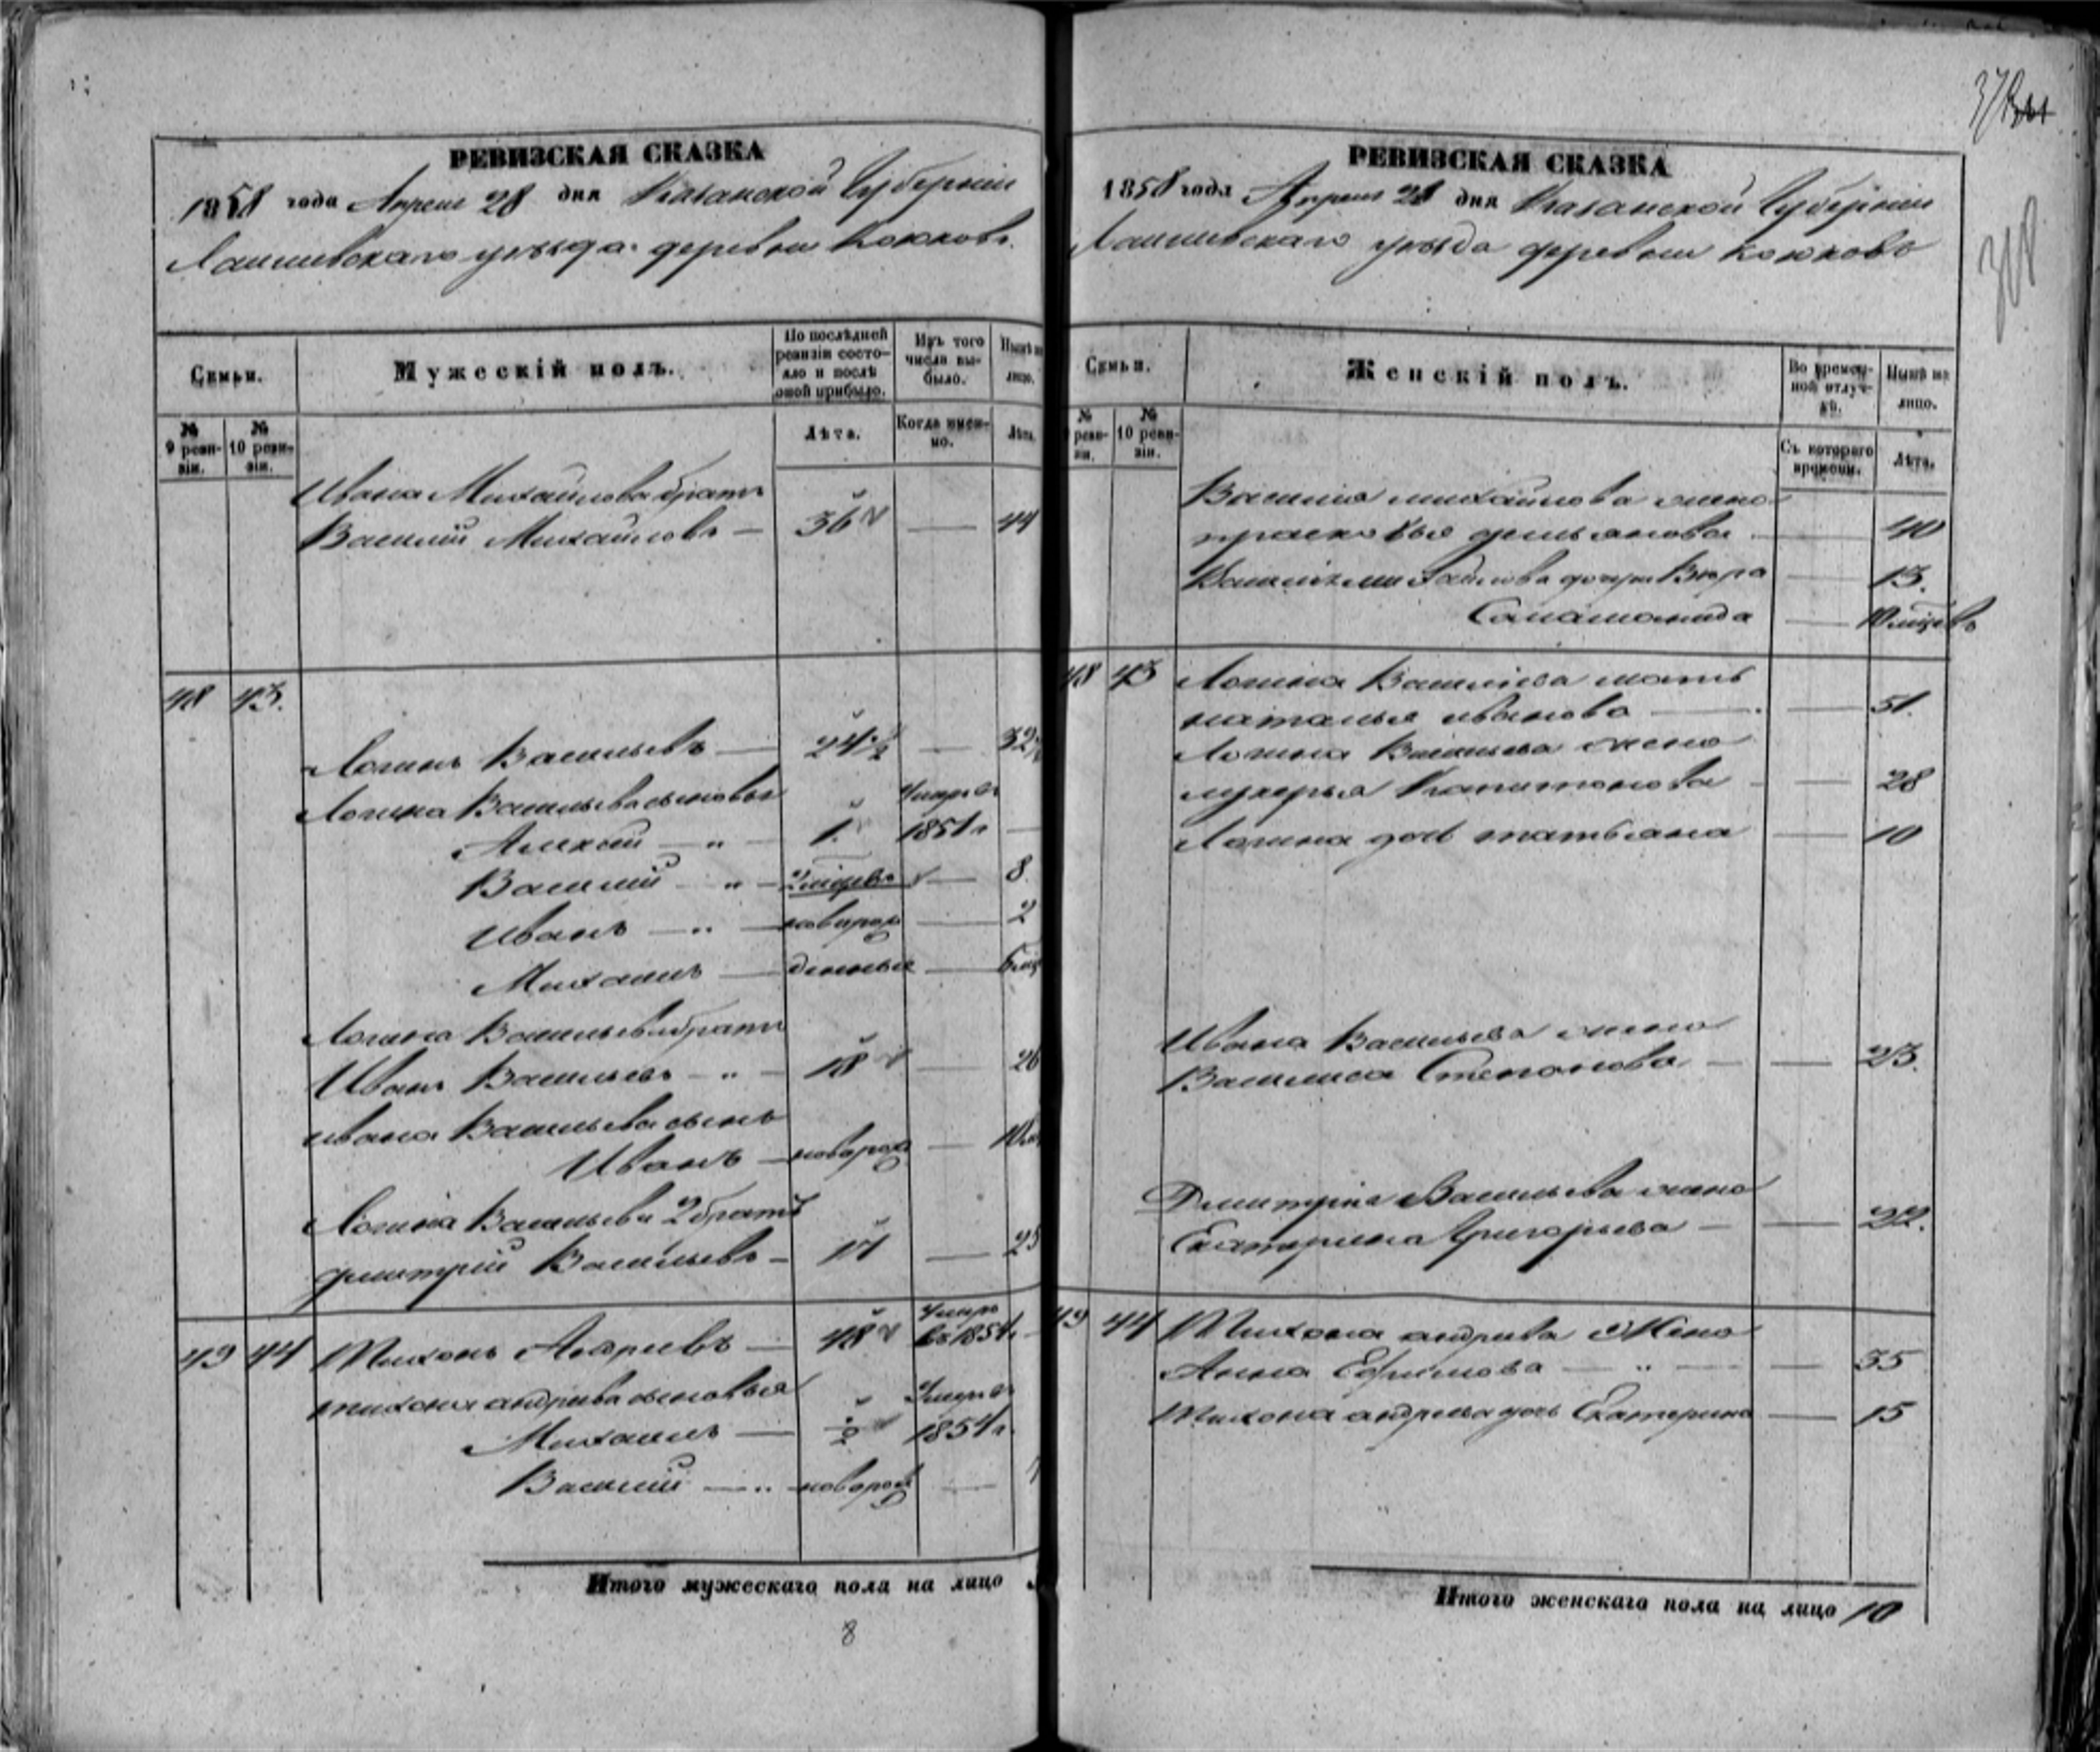 РЕВИЗСКАЯ СКАЗКА
1858 года Апреля 28 дня Казанской Губернии
Лаишевскаго уезда деревни Кококовъ
Семьи.
Мужескій полъ.
По послѣдней ревизіи состояло и послѣ оной прибыло.
Изъ того числа выбыло.
Нынѣ на лицо.
№ 9 ревизіи.
№ 10 ревизіи.
Лѣта.
Когда именно.
Лѣта.
Ивана Михайлова братъ
Василій Михайловъ — 36 — 44
48 43.
Логинъ Васильевъ — 24 1/2 — 32
Логина Васильева сыновья
Алексей — " — 1. Умеръ въ 1851 г —
Василий — " — 2 месецовъ — 8.
Иванъ — " — новорож — 2
Михаилъ — денные — 6 мц
Логина Васильева братъ
Иванъ Васильевъ — " — 18 — 26
Ивана Васильева сынъ
Иванъ — новорож — 10
Логина Васильева 2 братъ
Дмитрий Васильевъ — 17 — 25
49 44 Тихонъ Андреевъ — 48 Умеръ въ 1854 г —
Тихона андреева сыновья
Михаилъ — 1/2 Умеръ въ 1854 г.
Василий — " — новорож —
Итого мужескаго пола на лицо
8
РЕВИЗСКАЯ СКАЗКА
1858 года Апреля 28 дня Казанской Губернии
Лаишевскаго уезда деревни
318
Семьи.
Женскій полъ.
Во временной отлучкѣ.
Нынѣ на лицо.
№ ревизіи.
№ 10 ревизіи.
Съ котораго времени.
Лѣта.
Василия михайлова жена
прасковья демьянова — 40
Василия михайлова дочери Вера — 13.
Саламонида — 10 месецовъ
48 43 Логина Васильева мать
наталья иванова — 51.
Логина Васильева жена
лукерья Капитонова — 28
Логина дочь татьяна — 10
Ивана Васильева жена
Василиса Степанова — 23.
Дмитрия Васильева жена
Екатерина Григорьева — 22.
49 44 Тихона андреева Жена
Анна Ефимова — " — 35
Тихона андреева дочь Екатерина — 15
Итого женскаго пола на лицо 10